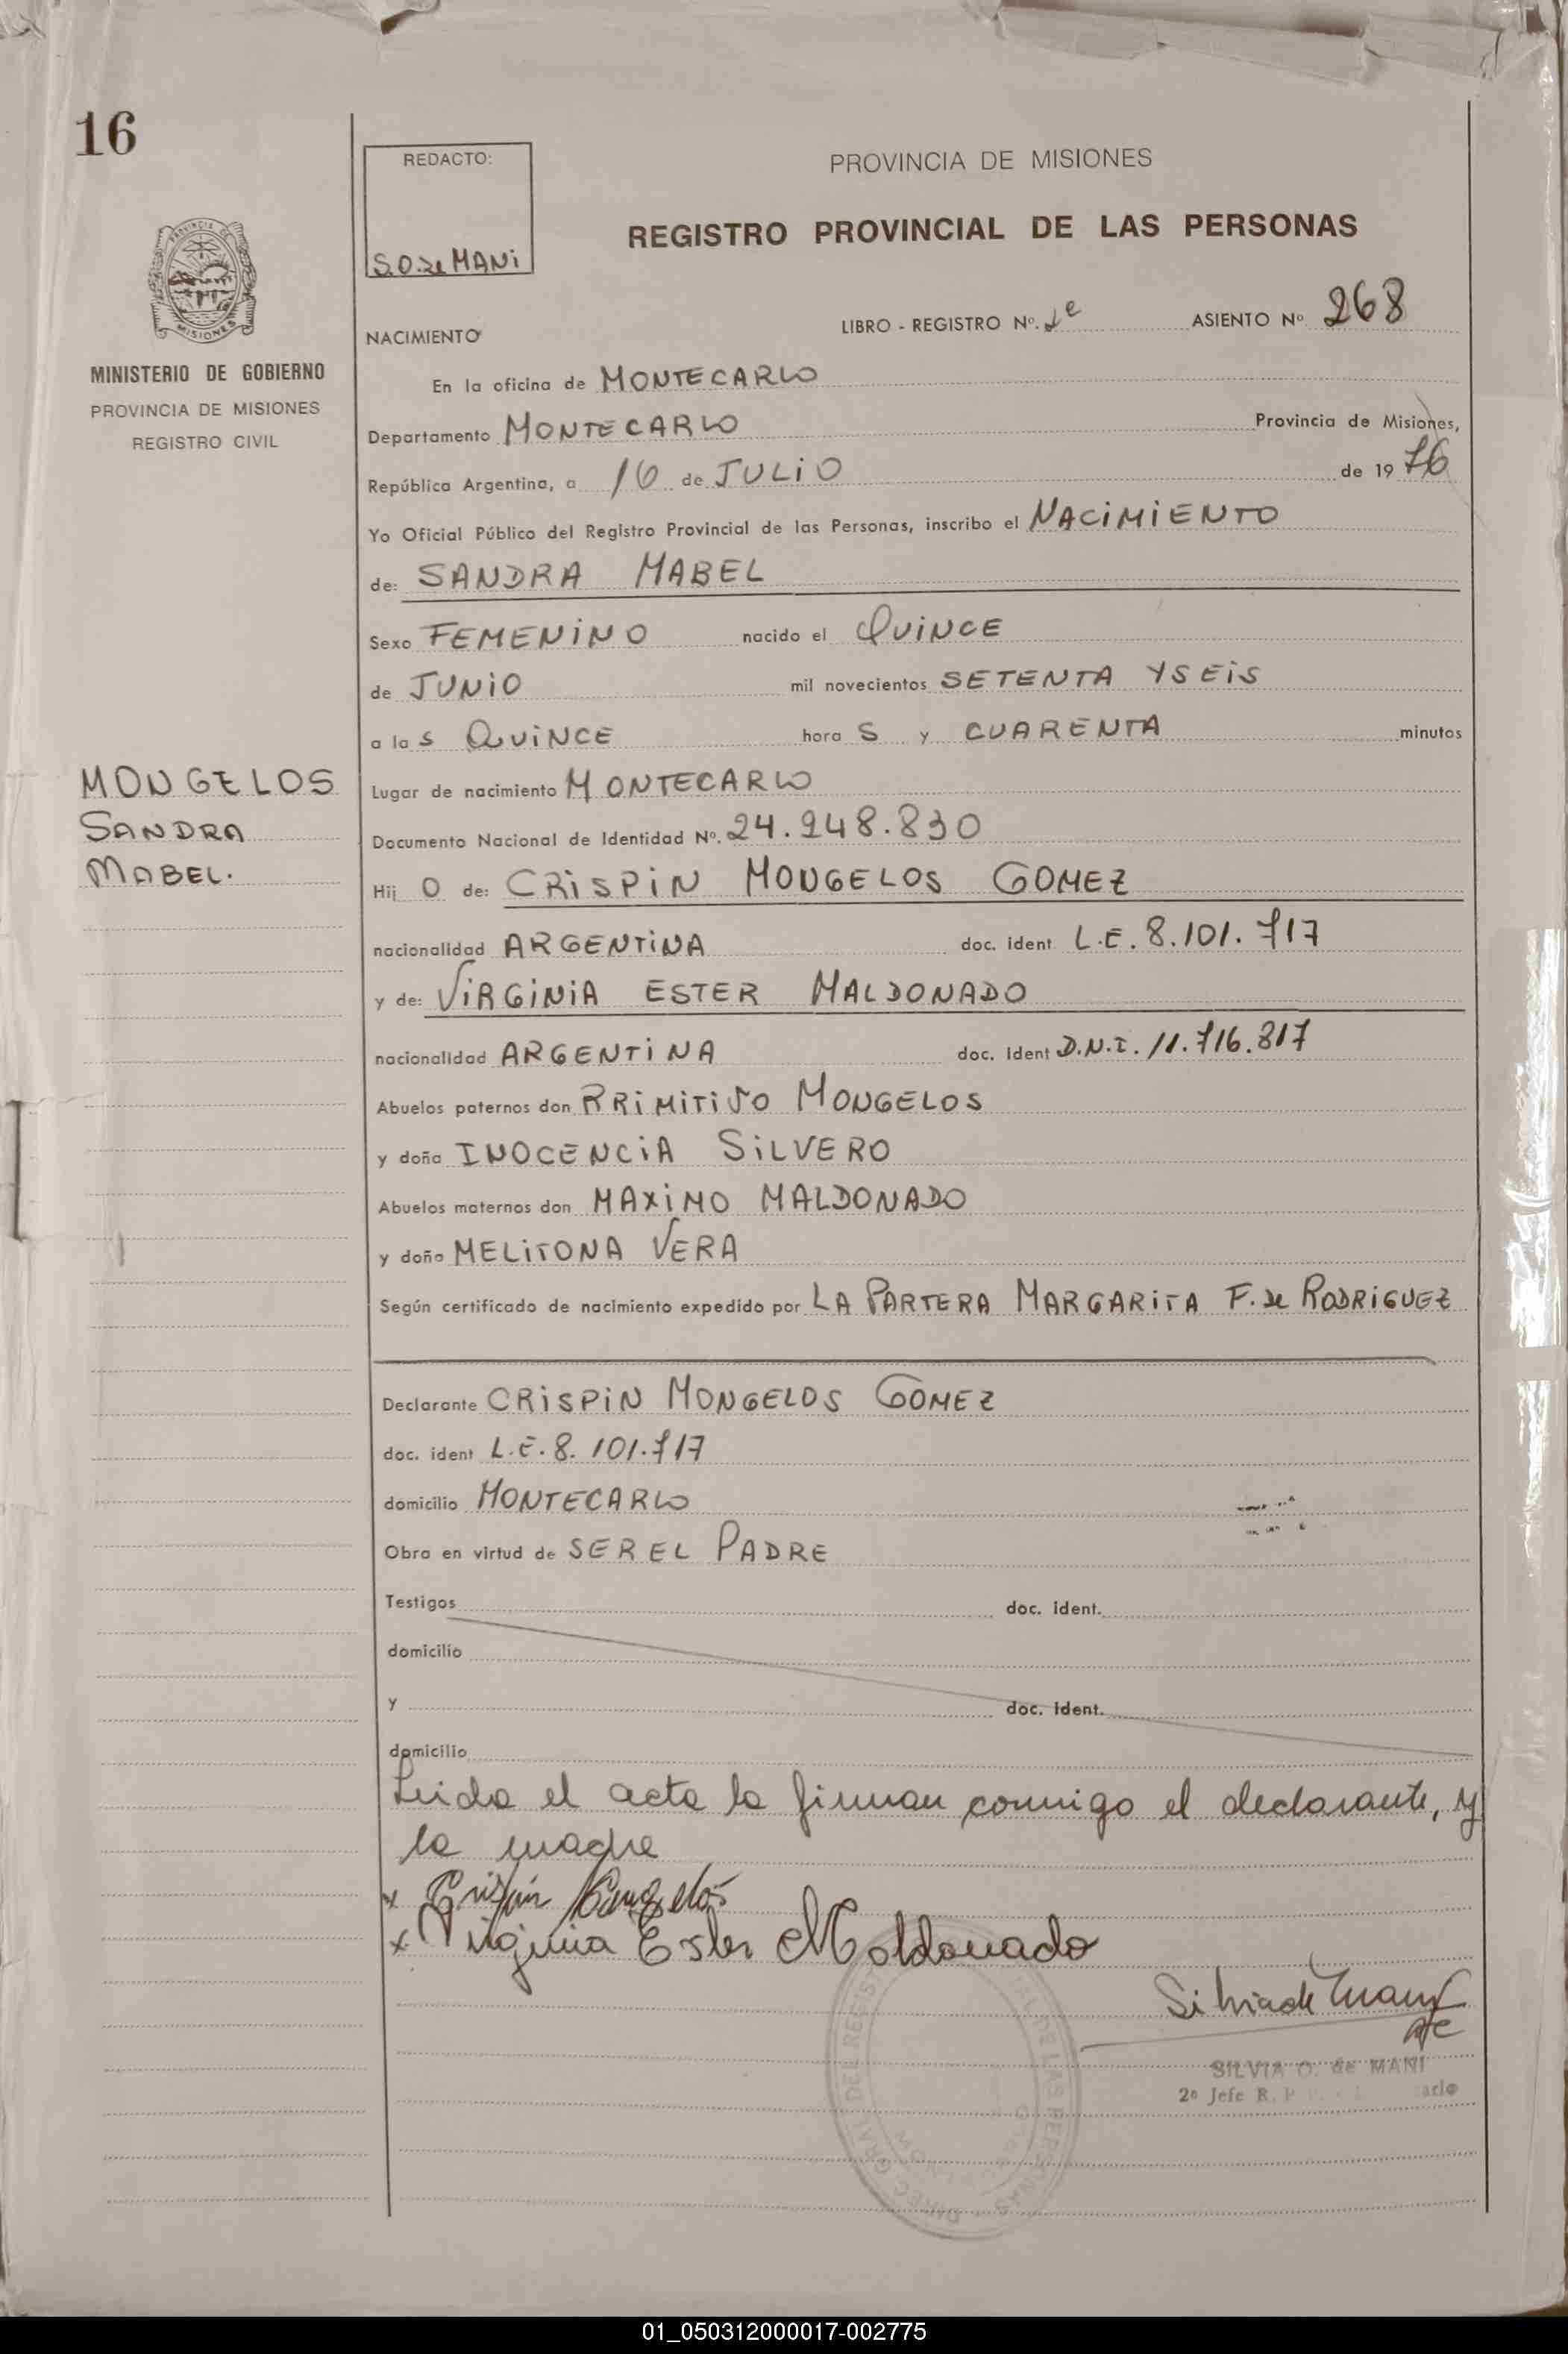 16
REDACTO:
S.O. de MANi
PROVINCIA DE MISIONES
REGISTRO PROVINCIAL DE LAS PERSONAS
MISIONES
MINISTERIO DE GOBIERNO
PROVINCIA DE MISIONES
REGISTRO CIVIL
NACIMIENTO
LIBRO - REGISTRO Nº. ASIENTO Nº 268
En la oficina de MONTECARLO
Departamento MONTECARLO Provincia de Misiones,
República Argentina, a 16 de JULiO de 19 76
Yo Oficial Público del Registro Provincial de las Personas, inscribo el NACiMiENTO
de: SANDRA MABEL
Sexo FEMENiNO nacido el QUiNCE
de JUNiO mil novecientos SETENTA Y SEiS
a las QUiNCE hora S y CUARENTA minutos
MONGELOS
SANDRA
MABEL.
Lugar de nacimiento MONTECARLO
Documento Nacional de Identidad Nº. 24.948.830
Hij O de: CRiSPiN MONGELOS GOMEZ
nacionalidad ARGENTiNA doc. ident L.E. 8.101.717
y de: ViRGiNiA ESTER MALDONADO
nacionalidad ARGENTiNA doc. ident D.N.I. 11.716.817
Abuelos paternos don PRiMiTiVO MONGELOS
y doña INOCENCiA SiLVERO
Abuelos maternos don MAXiMO MALDONADO
y doña MELiTONA VERA
Según certificado de nacimiento expedido por LA PARTERA MARGARiTA F. de RODRiGUEZ
Declarante CRiSPiN MONGELOS GOMEZ
doc. ident L.E. 8.101.717
domicilio MONTECARLO
Obra en virtud de SER EL PADRE
Testigos doc. ident.
domicilio
y doc. ident.
domicilio
Leida el acta la firman conmigo el declarante, y
la madre
x Crispin Mongelós
x Virginia Ester Maldonado
Silvia de Mani
SILVIA O. de MANI
2º Jefe R. P.
01_050312000017-002775